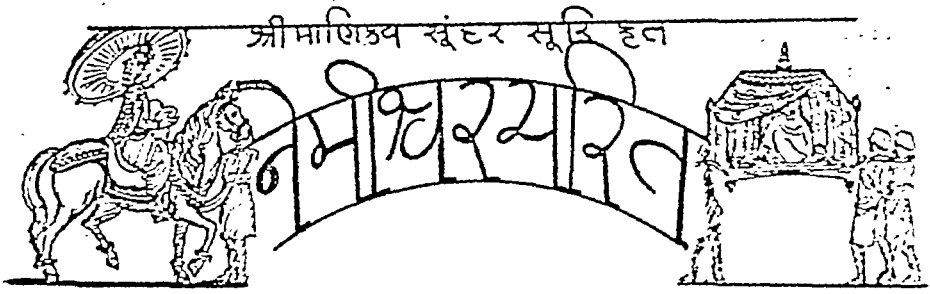 श्री माणिक्य सूंदर सूरि कृत
नेमीश्वरचरित